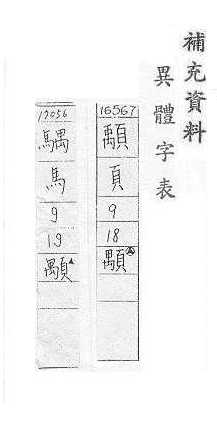 補充資料
異體字表
16567
頁
9
18
顒
17056
馬
9
19
顒